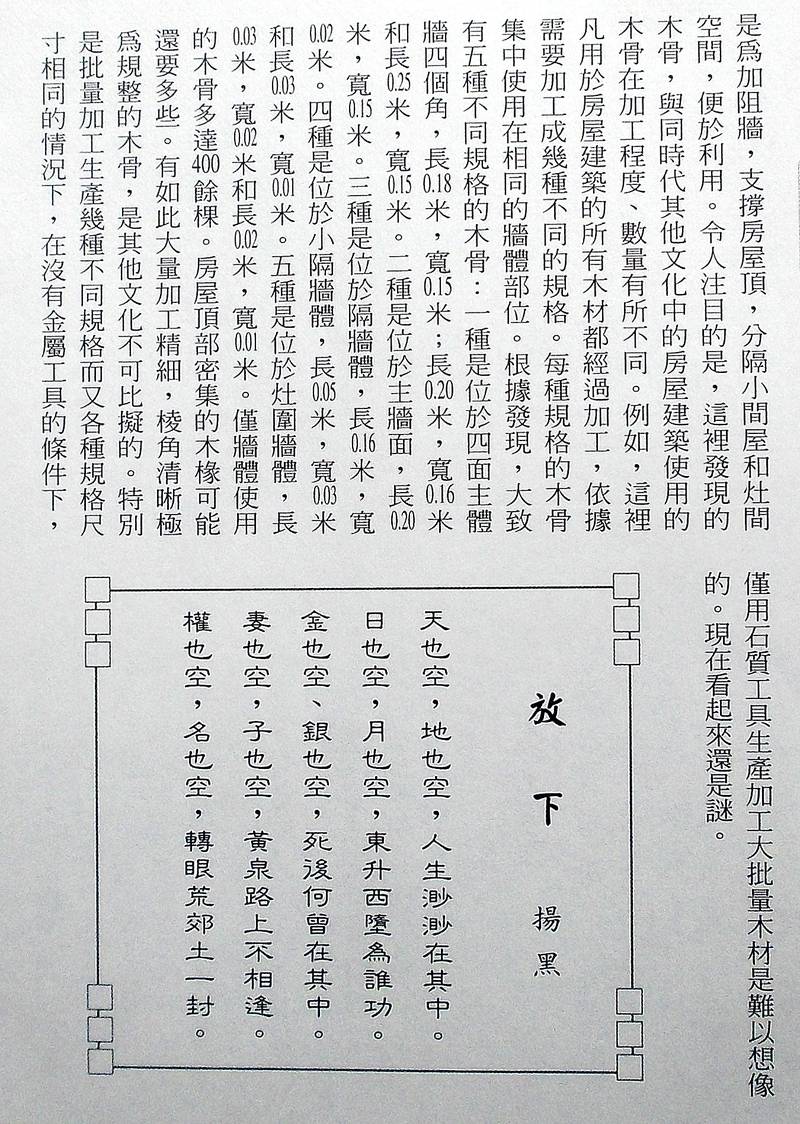 是爲加阻牆，支撐房屋頂，分隔小間屋和灶間
空間，便於利用。令人注目的是，這裡發現的
木骨，與同時代其他文化中的房屋建築使用的
木骨在加工程度、數量有所不同。例如，這裡
凡用於房屋建築的所有木材都經過加工，依據
需要加工成幾種不同的規格。每種規格的木骨
集中使用在相同的牆體部位。根據發現，大致
有五種不同規格的木骨：一種是位於四面主體
牆四個角，長0.18米，寬0.15米；長0.20米，寬0.16米
和長0.25米，寬0.15米。二種是位於主牆面，長0.20
米，寬0.15米。三種是位於隔牆體，長0.16米，寬
0.02米。四種是位於小隔牆體，長0.05米，寬0.03米
和長0.03米，寬0.01米。五種是位於灶圍牆體，長
0.03米，寬0.02米和長0.02米，寬0.01米。僅牆體使用
的木骨多達400餘棵。房屋頂部密集的木椽可能
還要多些。有如此大量加工精細，棱角清晰極
爲規整的木骨，是其他文化不可比擬的。特別
是批量加工生產幾種不同規格而又各種規格尺
寸相同的情況下，在沒有金屬工具的條件下，
僅用石質工具生產加工大批量木材是難以想像
的。現在看起來還是謎。
放下 揚黑
天也空，地也空，人生渺渺在其中。
日也空，月也空，東升西墮為誰功。
金也空、銀也空，死後何曾在其中。
妻也空，子也空，黃泉路上不相逢。
權也空，名也空，轉眼荒郊土一封。